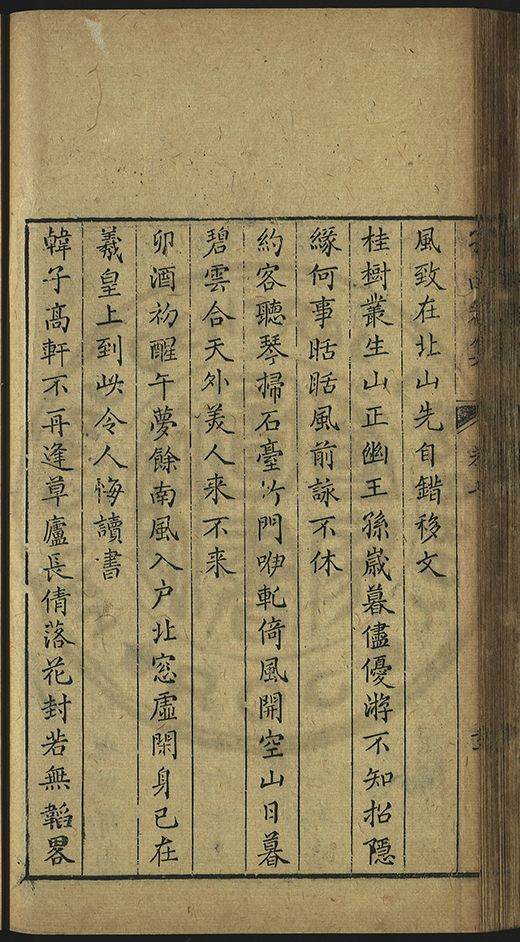 風致在北山先自錯移文
桂樹叢生山正幽王孫嵗暮儘優游不知招隱
緣何事聒聒風前詠不休
約客聽琴掃石臺竹門咿軋倚風開空山日暮
碧雲合天外美人来不来
卯酒初醒午夢餘南風入户北窓虛閑身已在
羲皇上到此令人悔讀書
韓子髙軒不再逢草廬長倩落花封若無韜畧